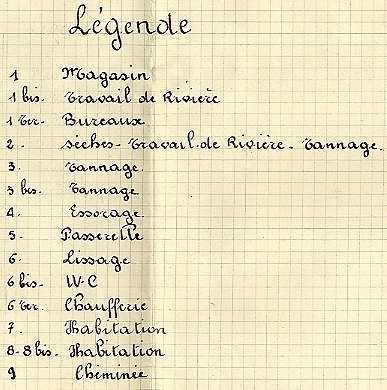 Légende
1 Magasin
1 bis. Travail de Rivière
1 Ter. Bureaux
2. sèches - Travail. de Rivière. Tannage.
3. Tannage.
3 bis. Tannage.
4. Essorage.
5. Passerelle
6. Lissage
6 bis. W-C
6 Ter. Chaufferie
7. Habitation
8-8 bis. Habitation
9 Cheminée